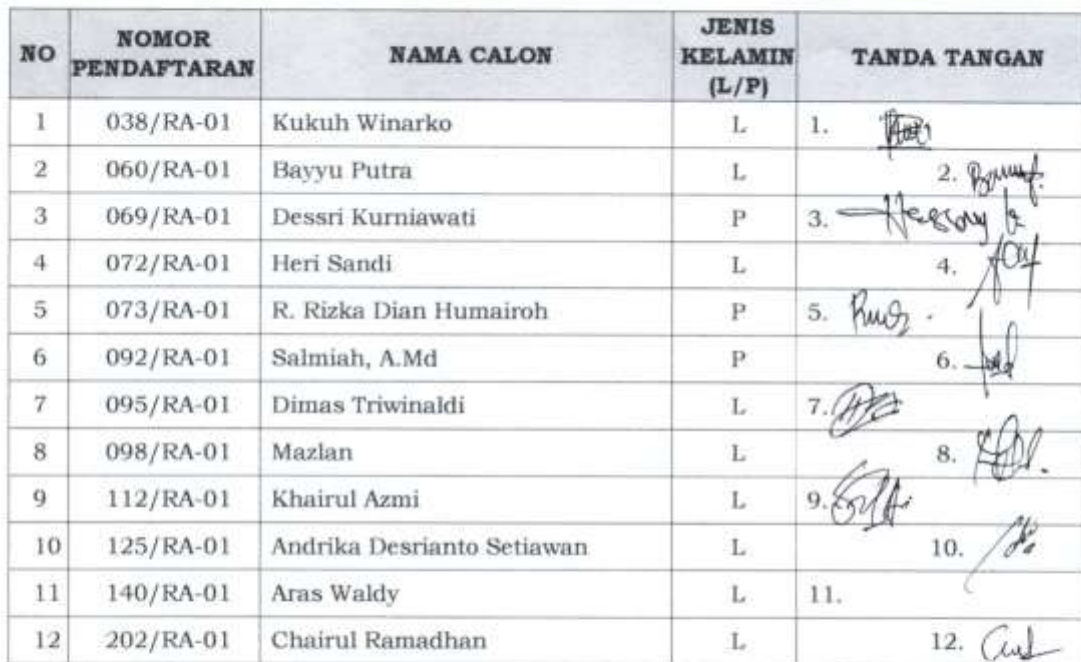 NO NOMOR PENDAFTARAN NAMA CALON JENIS KELAMIN (L/P) TANDA TANGAN
1 038/RA-01 Kukuh Winarko L 1.
2 060/RA-01 Bayyu Putra L 2.
3 069/RA-01 Dessri Kurniawati P 3.
4 072/RA-01 Heri Sandi L 4.
5 073/RA-01 R. Rizka Dian Humairoh P 5.
6 092/RA-01 Salmiah, A.Md P 6.
7 095/RA-01 Dimas Triwinaldi L 7.
8 098/RA-01 Mazlan L 8.
9 112/RA-01 Khairul Azmi L 9.
10 125/RA-01 Andrika Desrianto Setiawan L 10.
11 140/RA-01 Aras Waldy L 11.
12 202/RA-01 Chairul Ramadhan L 12.